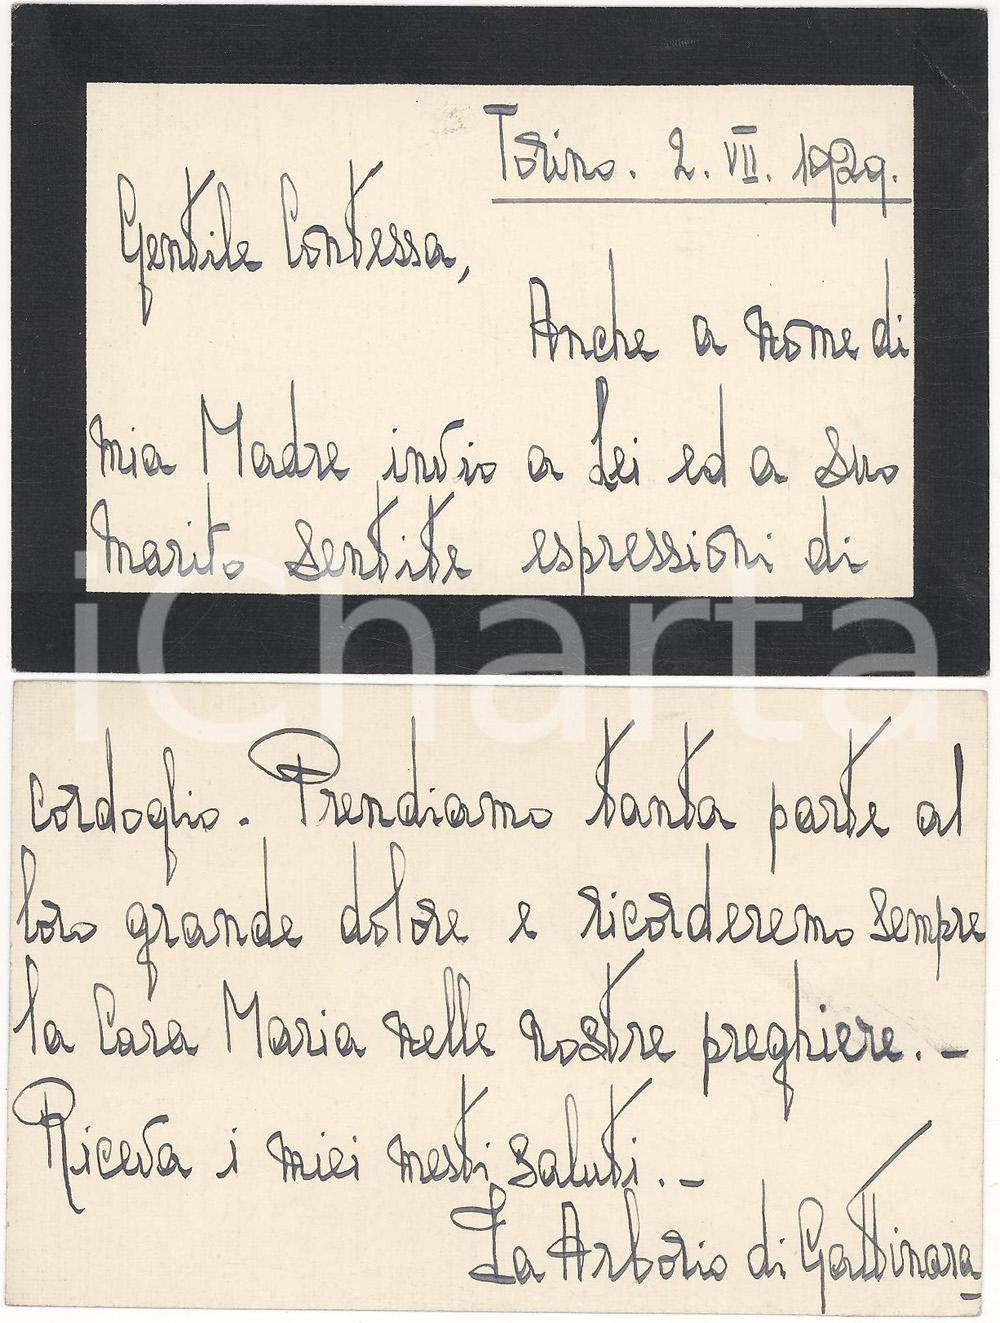 Torino. 2. VII. 1929.
Gentile Contessa,
Anche a nome di
mia Madre invio a Lei ed a Suo
marito sentite espressioni di
iCharta
cordoglio. Prendiamo tanta parte al
loro grande dolore e ricorderemo sempre
la Cara Maria nelle nostre preghiere. –
Riceva i miei mesti saluti. –
Ia Arborio di Gattinara